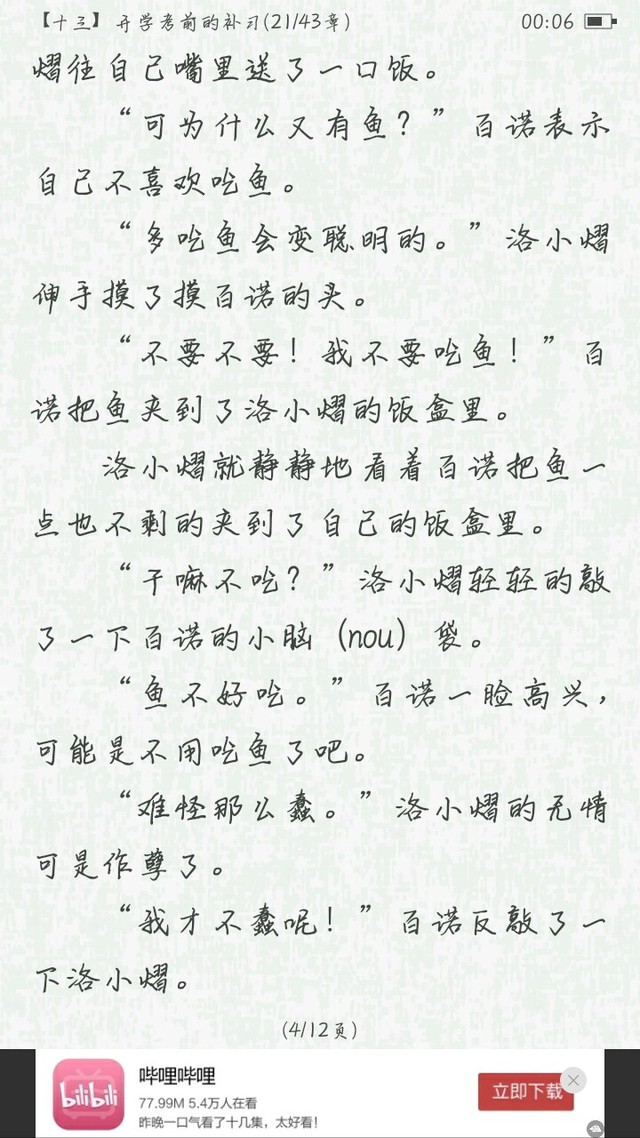 【十三】开学考前的补习(21/43章)
00:06
熠往自己嘴里送了一口饭。
“可为什么又有鱼？”百诺表示
自己不喜欢吃鱼。
“多吃鱼会变聪明的。”洛小熠
伸手摸了摸百诺的头。
“不要不要！我不要吃鱼！”百
诺把鱼夹到了洛小熠的饭盒里。
洛小熠就静静地看着百诺把鱼一
点也不剩的夹到了自己的饭盒里。
“干嘛不吃？”洛小熠轻轻的敲
了一下百诺的小脑（nou）袋。
“鱼不好吃。”百诺一脸高兴，
可能是不用吃鱼了吧。
“难怪那么蠢。”洛小熠的无情
可是作孽了。
“我才不蠢呢！”百诺反敲了一
下洛小熠。
(4/12页)
bilibili
哔哩哔哩
77.99M 5.4万人在看
昨晚一口气看了十几集，太好看！
立即下载